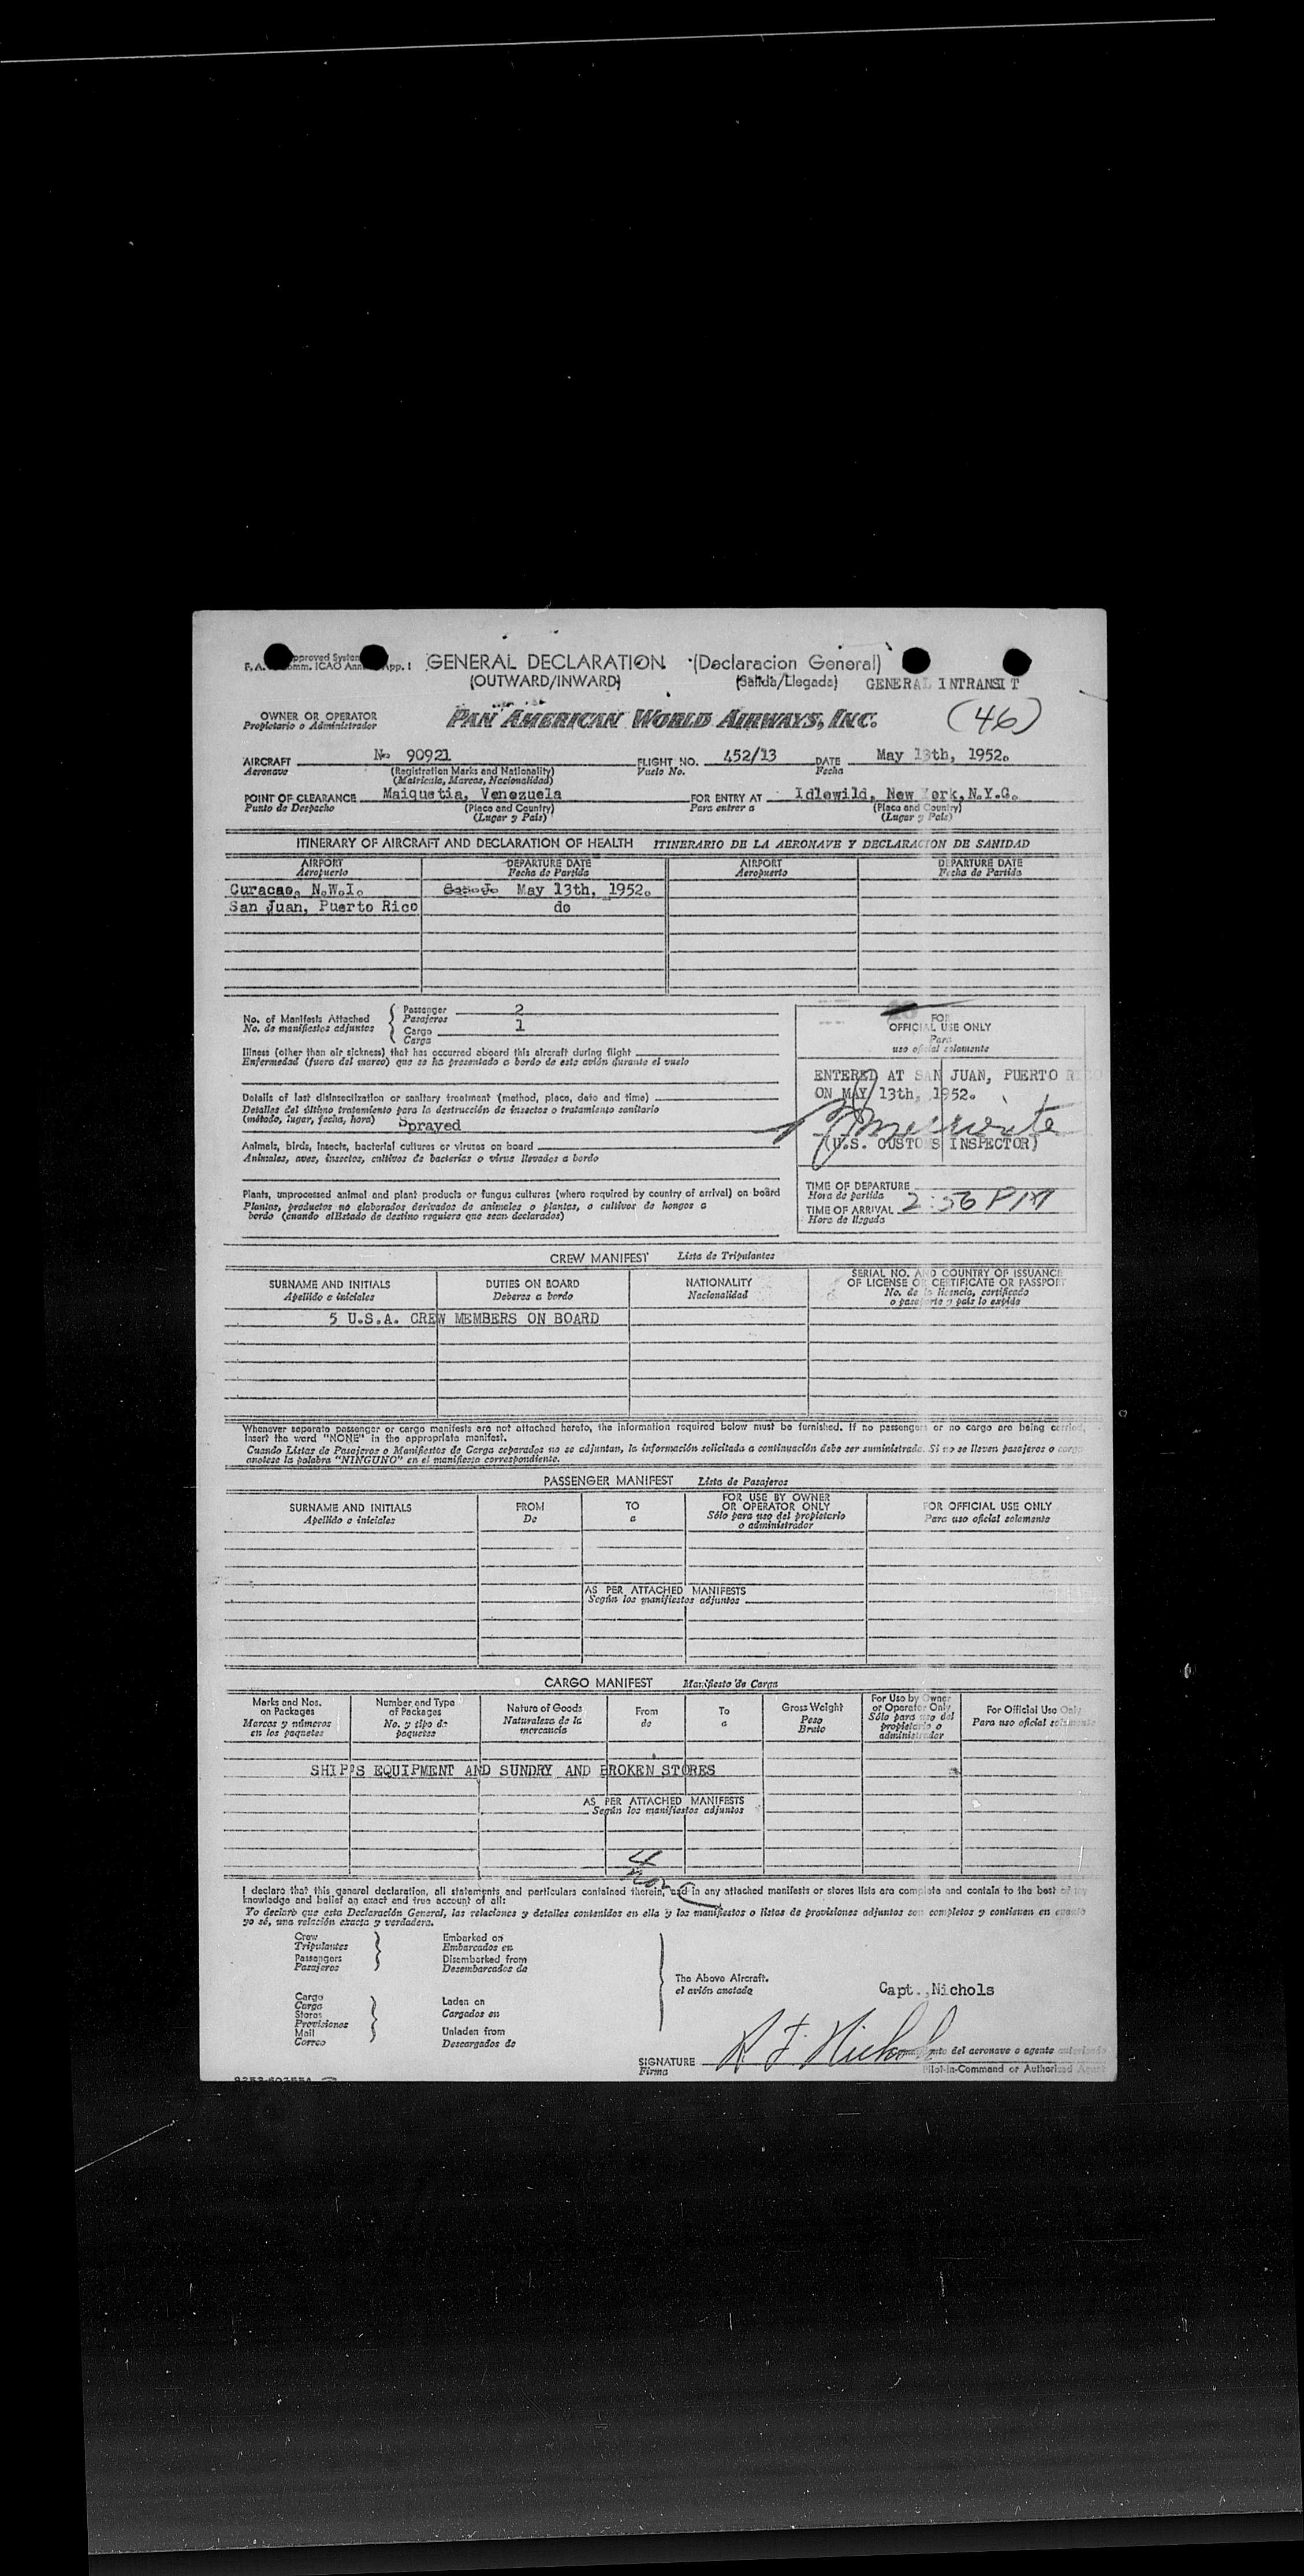 GENERAL DECLARATION (Declaracion General)
(OUTWARD/INWARD) (Salida/Llegada) GENERAL INTRANSIT
(46)
OWNER OR OPERATOR
Propietario o Administrador
PAN AMERICAN WORLD AIRWAYS, INC.
AIRCRAFT No 90921 FLIGHT NO. 452/13 DATE May 13th, 1952.
Aeronave (Registration Marks and Nationality) Vuelo No. Fecha
(Matricula, Marcas, Nacionalidad)
POINT OF CLEARANCE Maiquetia, Venezuela FOR ENTRY AT Idlewild, New York, N.Y.G.
Punto de Despacho (Place and Country) Para entrar a (Place and Country)
(Lugar y Pais) (Lugar y Pais)
ITINERARY OF AIRCRAFT AND DECLARATION OF HEALTH ITINERARIO DE LA AERONAVE Y DECLARACION DE SANIDAD
AIRPORT DEPARTURE DATE AIRPORT DEPARTURE DATE
Aeropuerto Fecha de Partida Aeropuerto Fecha de Partida
Curacao, N.W.I. May 13th, 1952.
San Juan, Puerto Rico do
No. of Manifests Attached
No. de manifiestos adjuntos
Passenger 2
Pasajeros
Cargo 1
Carga
Illness (other than air sickness) that has occurred aboard this aircraft during flight
Enfermedad (fuera del mareo) que se ha presentado a bordo de este avión durante el vuelo
Details of last disinsectization or sanitary treatment (method, place, date and time)
Detalles del último tratamiento para la destrucción de insectos o tratamiento sanitario
(método, lugar, fecha, hora) Sprayed
Animals, birds, insects, bacterial cultures or viruses on board
Animales, aves, insectos, cultivos de bacterias o virus llevados a bordo
Plants, unprocessed animal and plant products or fungus cultures (where required by country of arrival) on board
Plantas, productos no elaborados derivados de animales o plantas, o cultivos de hongos a
bordo (cuando el Estado de destino requiere que sean declarados)
FOR
OFFICIAL USE ONLY
Para
uso oficial solamente
ENTERED AT SAN JUAN, PUERTO RICO
ON MAY 13th, 1952.
(U.S. CUSTOMS INSPECTOR)
TIME OF DEPARTURE
Hora de partida
TIME OF ARRIVAL 2:56 PM
Hora de llegada
CREW MANIFEST Lista de Tripulantes
SURNAME AND INITIALS DUTIES ON BOARD NATIONALITY SERIAL NO. AND COUNTRY OF ISSUANCE
OF LICENSE OR CERTIFICATE OR PASSPORT
Apellido e iniciales Deberes a bordo Nacionalidad No. de la licencia, certificado
o pasaporte y pais lo expide
5 U.S.A. CREW MEMBERS ON BOARD
Whenever separate passenger or cargo manifests are not attached hereto, the information required below must be furnished. If no passengers or no cargo are being carried,
insert the word "NONE" in the appropriate manifest.
Cuando Listas de Pasajeros o Manifiestos de Carga separados no se adjuntan, la información solicitada a continuación debe ser suministrada. Si no se llevan pasajeros o carga
anotese la palabra "NINGUNO" en el manifiesto correspondiente.
PASSENGER MANIFEST Lista de Pasajeros
SURNAME AND INITIALS FROM TO FOR USE BY OWNER OR OPERATOR ONLY FOR OFFICIAL USE ONLY
Apellido e iniciales De a Sólo para uso del propietario o administrador Para uso oficial solamente
AS PER ATTACHED MANIFESTS
Según los manifiestos adjuntos
CARGO MANIFEST Manifiesto de Carga
Marks and Nos. on Packages Number and Type of Packages Nature of Goods From To Gross Weight For Use by Owner or Operator Only For Official Use Only
Marcas y números en los paquetes No. y tipo de paquetes Naturaleza de la mercancia de a Peso Bruto Sólo para uso del propietario o administrador Para uso oficial solamente
SHIP'S EQUIPMENT AND SUNDRY AND BROKEN STORES
AS PER ATTACHED MANIFESTS
Según los manifiestos adjuntos
I declare that this general declaration, all statements and particulars contained therein, and in any attached manifests or stores lists are complete and contain to the best of my
knowledge and belief an exact and true account of all:
Yo declaro que esta Declaración General, las relaciones y detalles contenidos en ella y los manifiestos o listas de provisiones adjuntos son completos y contienen en cuanto
yo sé, una relación exacta y verdadera.
Crew Embarked on
Tripulantes Embarcados en
Passengers Disembarked from
Pasajeros Desembarcados de
The Above Aircraft.
el avión anotado
Capt., Nichols
Cargo
Carga Laden on
Stores Cargados en
Provisiones
Mail Unladen from
Correo Descargados de
SIGNATURE
Firma
A F Nichols
del aeronave o agente autorizado
Pilot-in-Command or Authorized Agent